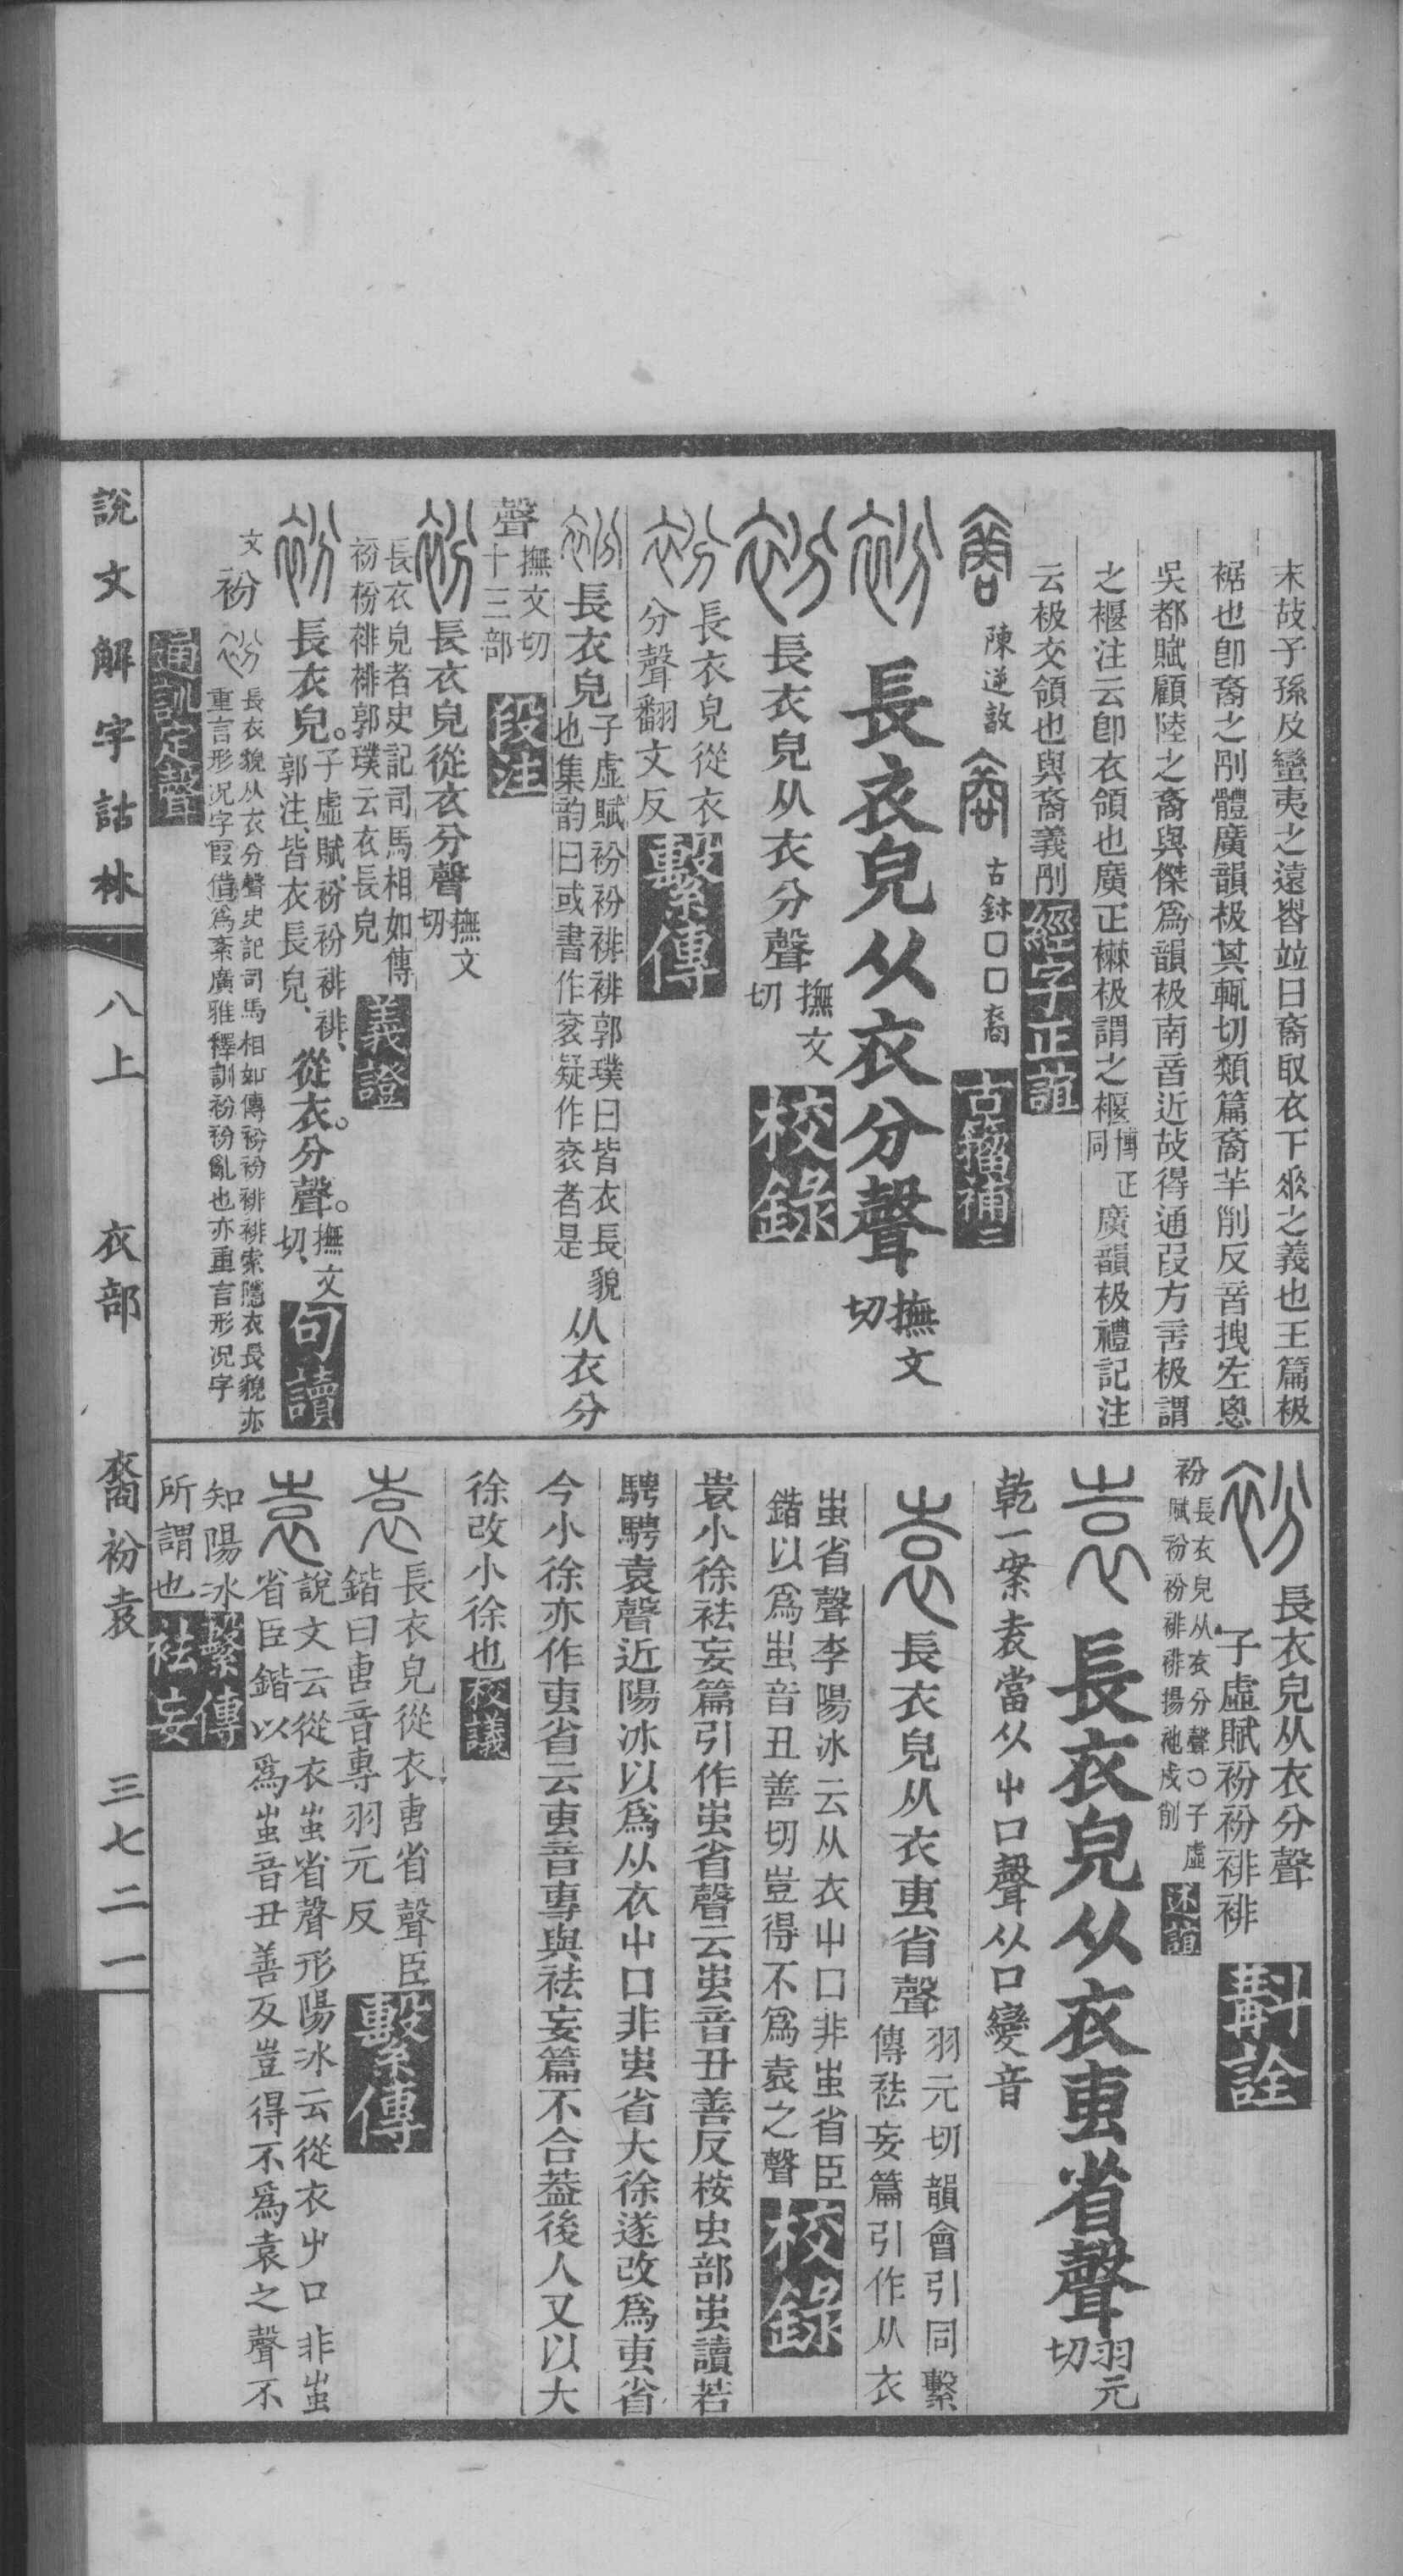 末故子孫及蠻夷之遠者竝曰裔取衣下垂之義也玉篇极
裾也卽裔之剛體廣韻极其輒切類篇裔芉削反音拽左恩
吳都賦顧陸之裔與傑爲韻极南音近故得通叚方言极謂
之褗注云卽衣領也廣疋㯠极謂之褗博疋同廣韻极禮記注
云极交領也與裔義刖經字正誼
陳逆敦 古鉢口口裔 古籀補
長衣皃从衣分聲撫文切
長衣皃从衣分聲撫文切 校錄
長衣皃從衣分聲翻文反 繫傳
長衣皃子虛賦衯衯裶裶郭璞曰皆衣長貌也集韵曰或書作衮疑作衮者是从衣分
聲撫文切十三部 段注
長衣皃從衣分聲撫文切
長衣皃者史記司馬相如傳衯衯裶裶郭璞云衣長皃 義證
長衣皃。子虛賦、衯衯裶裶、郭注、皆衣長皃、從衣。分聲。撫文切、句讀
文衯長衣貌从衣分聲史記司馬相如傳衯衯裶裶索隱衣長貌亦重言形況字叚借爲紊廣雅釋訓衯衯亂也亦重言形況字
通訓定聲
長衣皃从衣分聲子虛賦衯衯裶裶 斠詮
衯長衣皃从衣分聲〇子虛賦衯衯裶裶揚袘戌削 述誼
長衣皃从衣叀省聲羽元切
乾一案袁當从屮口聲从口變音
長衣皃从衣叀省聲羽元切韻會引同繫傳袪妄篇引作从衣
蚩省聲李陽冰云从衣屮口非蚩省臣鍇以爲蚩音丑善切豈得不爲袁之聲 校錄
袁小徐袪妄篇引作蚩省聲云蚩音丑善反桉虫部蚩讀若
騁騁袁聲近陽冰以爲从衣屮口非蚩省大徐遂改爲叀省
今小徐亦作叀省云叀音專與袪妄篇不合葢後人又以大
徐改小徐也 校議
長衣皃從衣叀省聲臣鍇曰叀音專羽元反 繫傳
說文云從衣蚩省聲形陽冰云從衣屮口非蚩省臣鍇以爲蚩音丑善反豈得不爲袁之聲不
知陽冰所謂也 繫傳袪妄
說文解字詁林 八上 衣部 裔衯袁 三七二一